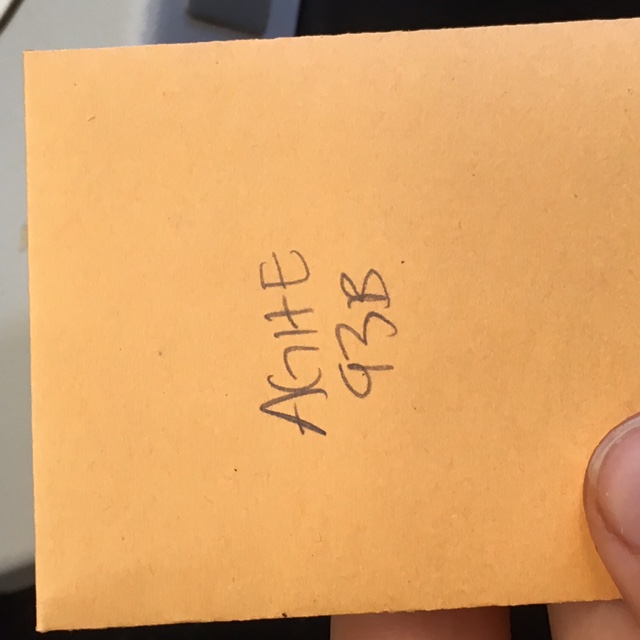 AGHE
93B